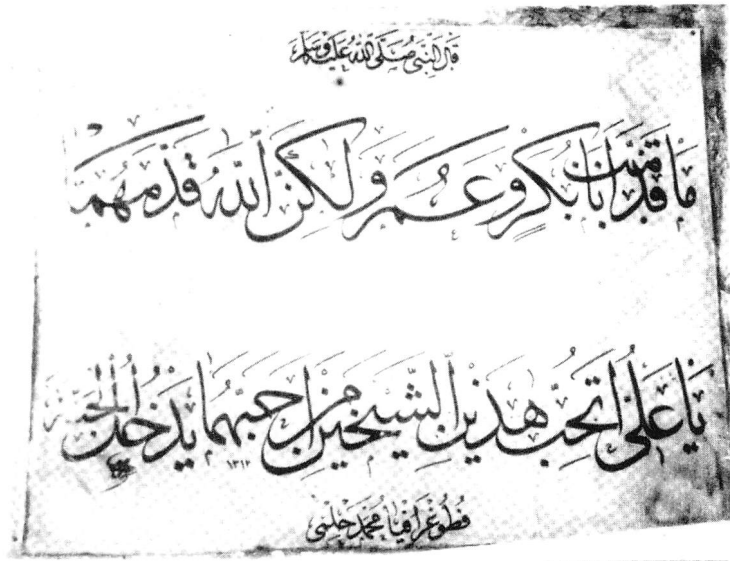 قال النبي صلى الله عليه وسلم
ما قدمت أبا بكر وعمر ولكن الله قدمهما
يا علي اتحب هذين الشيخين من احبهما يدخل الجنة
١٣١٢
فطوغرافيا محمد حلمي